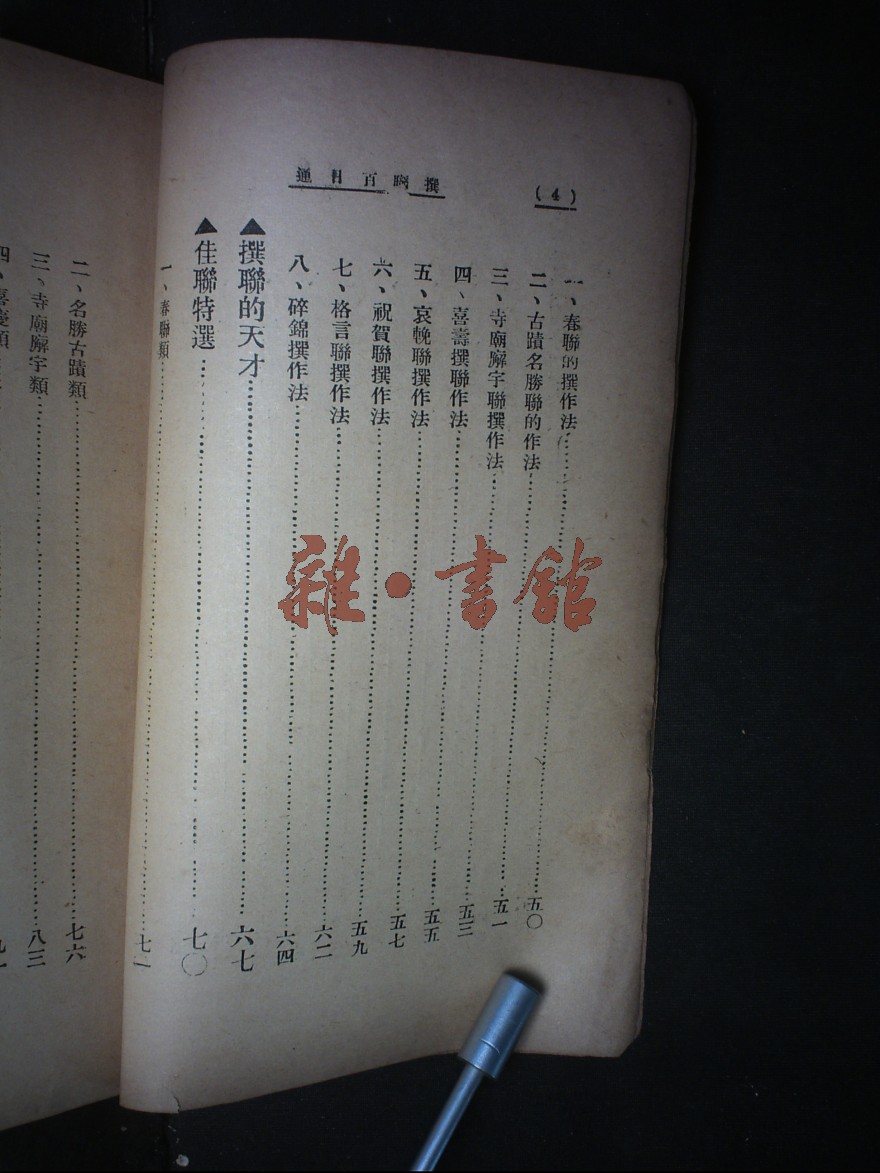 (4)
撰聯百日通
一、春聯的撰作法……五〇
二、古蹟名勝聯的作法……五一
三、寺廟廨宇聯撰作法……五三
四、喜壽撰聯作法……五五
五、哀輓聯撰作法……五七
六、祝賀聯撰作法……五九
七、格言聯撰作法……六二
八、碎錦撰作法……六四
▲撰聯的天才……六七
▲佳聯特選……七〇
一、春聯類……七一
二、名勝古蹟類……七六
三、寺廟廨宇類……八三
四、喜慶類
雜·書館